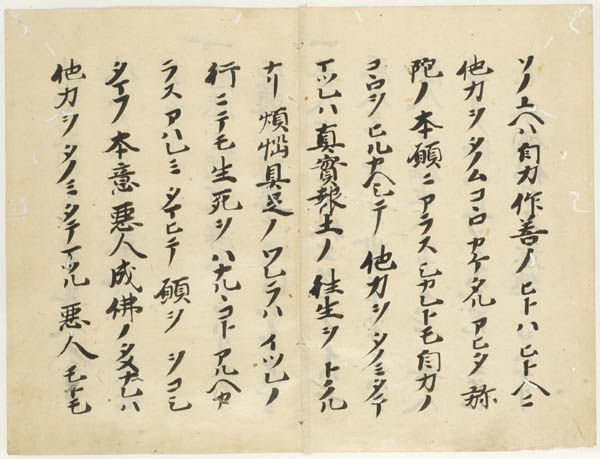 ソノユヘハ自力作善ノヒトハヒトヘニ
他力ヲタノムコヽロカケタルアヒタ弥
陀ノ本願ニアラスシカレトモ自力ノ
コヽロヲヒルカヘシテ他力ヲタノミタテ
マツレハ真實報土ノ往生ヲトクル
ナリ煩惱具足ノワレラハイツレノ
行ニテモ生死ヲハナルヽコトアルヘカ
ラスアハレミタマヒテ願ヲヲコシ
タマフ本意悪人成佛ノタメナレハ
他力ヲタノミタテマツル悪人モトモ